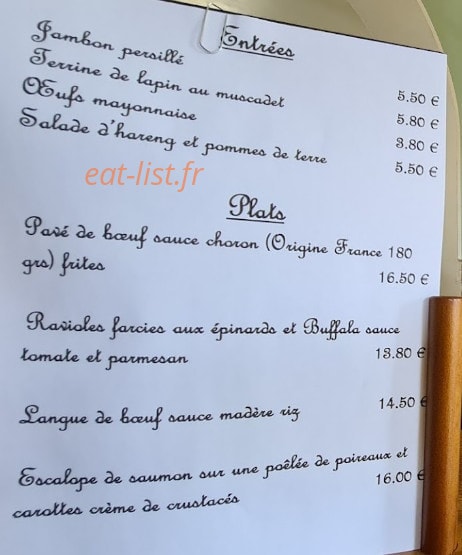 Entrées
Jambon persillé 5.50 €
Terrine de lapin au muscadet 5.80 €
Œufs mayonnaise 3.80 €
Salade d'hareng et pommes de terre 5.50 €
eat-list.fr
Plats
Pavé de bœuf sauce choron (Origine France 180
grs) frites 16.50 €
Ravioles farcies aux épinards et Buffala sauce
tomate et parmesan 13.80 €
Langue de bœuf sauce madère riz 14.50 €
Escalope de saumon sur une poêlée de poireaux et
carottes crème de crustacés 16.00 €